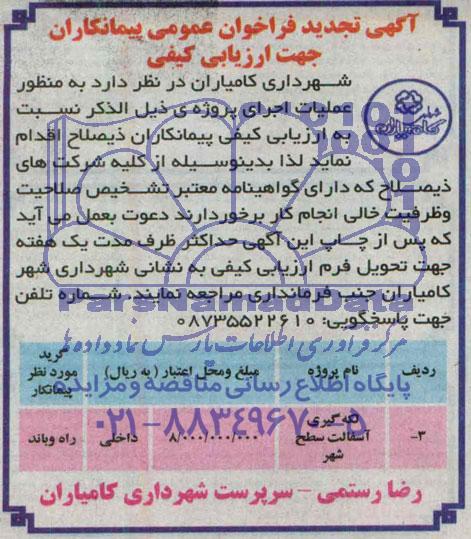 آگهی تجدید فراخوان عمومی پیمانکاران
جهت ارزیابی کیفی
شهرداری کامیاران
شهرداری کامیاران در نظر دارد به منظور
عملیات اجرای پروژه ی ذیل الذکر نسبت
به ارزیابی کیفی پیمانکاران ذیصلاح اقدام
نماید لذا بدینوسیله از کلیه شرکت های
ذیصلاح که دارای گواهینامه معتبر تشخیص صلاحیت
وظرفیت خالی انجام کار برخوردارند دعوت بعمل می آید
که پس از چاپ این آگهی حداکثر ظرف مدت یک هفته
جهت تحویل فرم ارزیابی کیفی به نشانی شهرداری شهر
کامیاران جنب فرمانداری مراجعه نمایند. شماره تلفن
جهت پاسخگویی: ۰۸۷۳۵۵۲۲۶۱۰
ParsNamadData
مرکز فرآوری اطلاعات پارس نماد داده ها
پایگاه اطلاع رسانی مناقصه و مزایده
۰۲۱-۸۸۳۴۹۶۷۰-۵
ردیف نام پروژه مبلغ ومحل اعتبار ( به ریال) گرید مورد نظر پیمانکار
۳- لکه گیری آسفالت سطح شهر ۸/۰۰۰/۰۰۰/۰۰۰ داخلی راه وباند
رضا رستمی – سرپرست شهرداری کامیاران